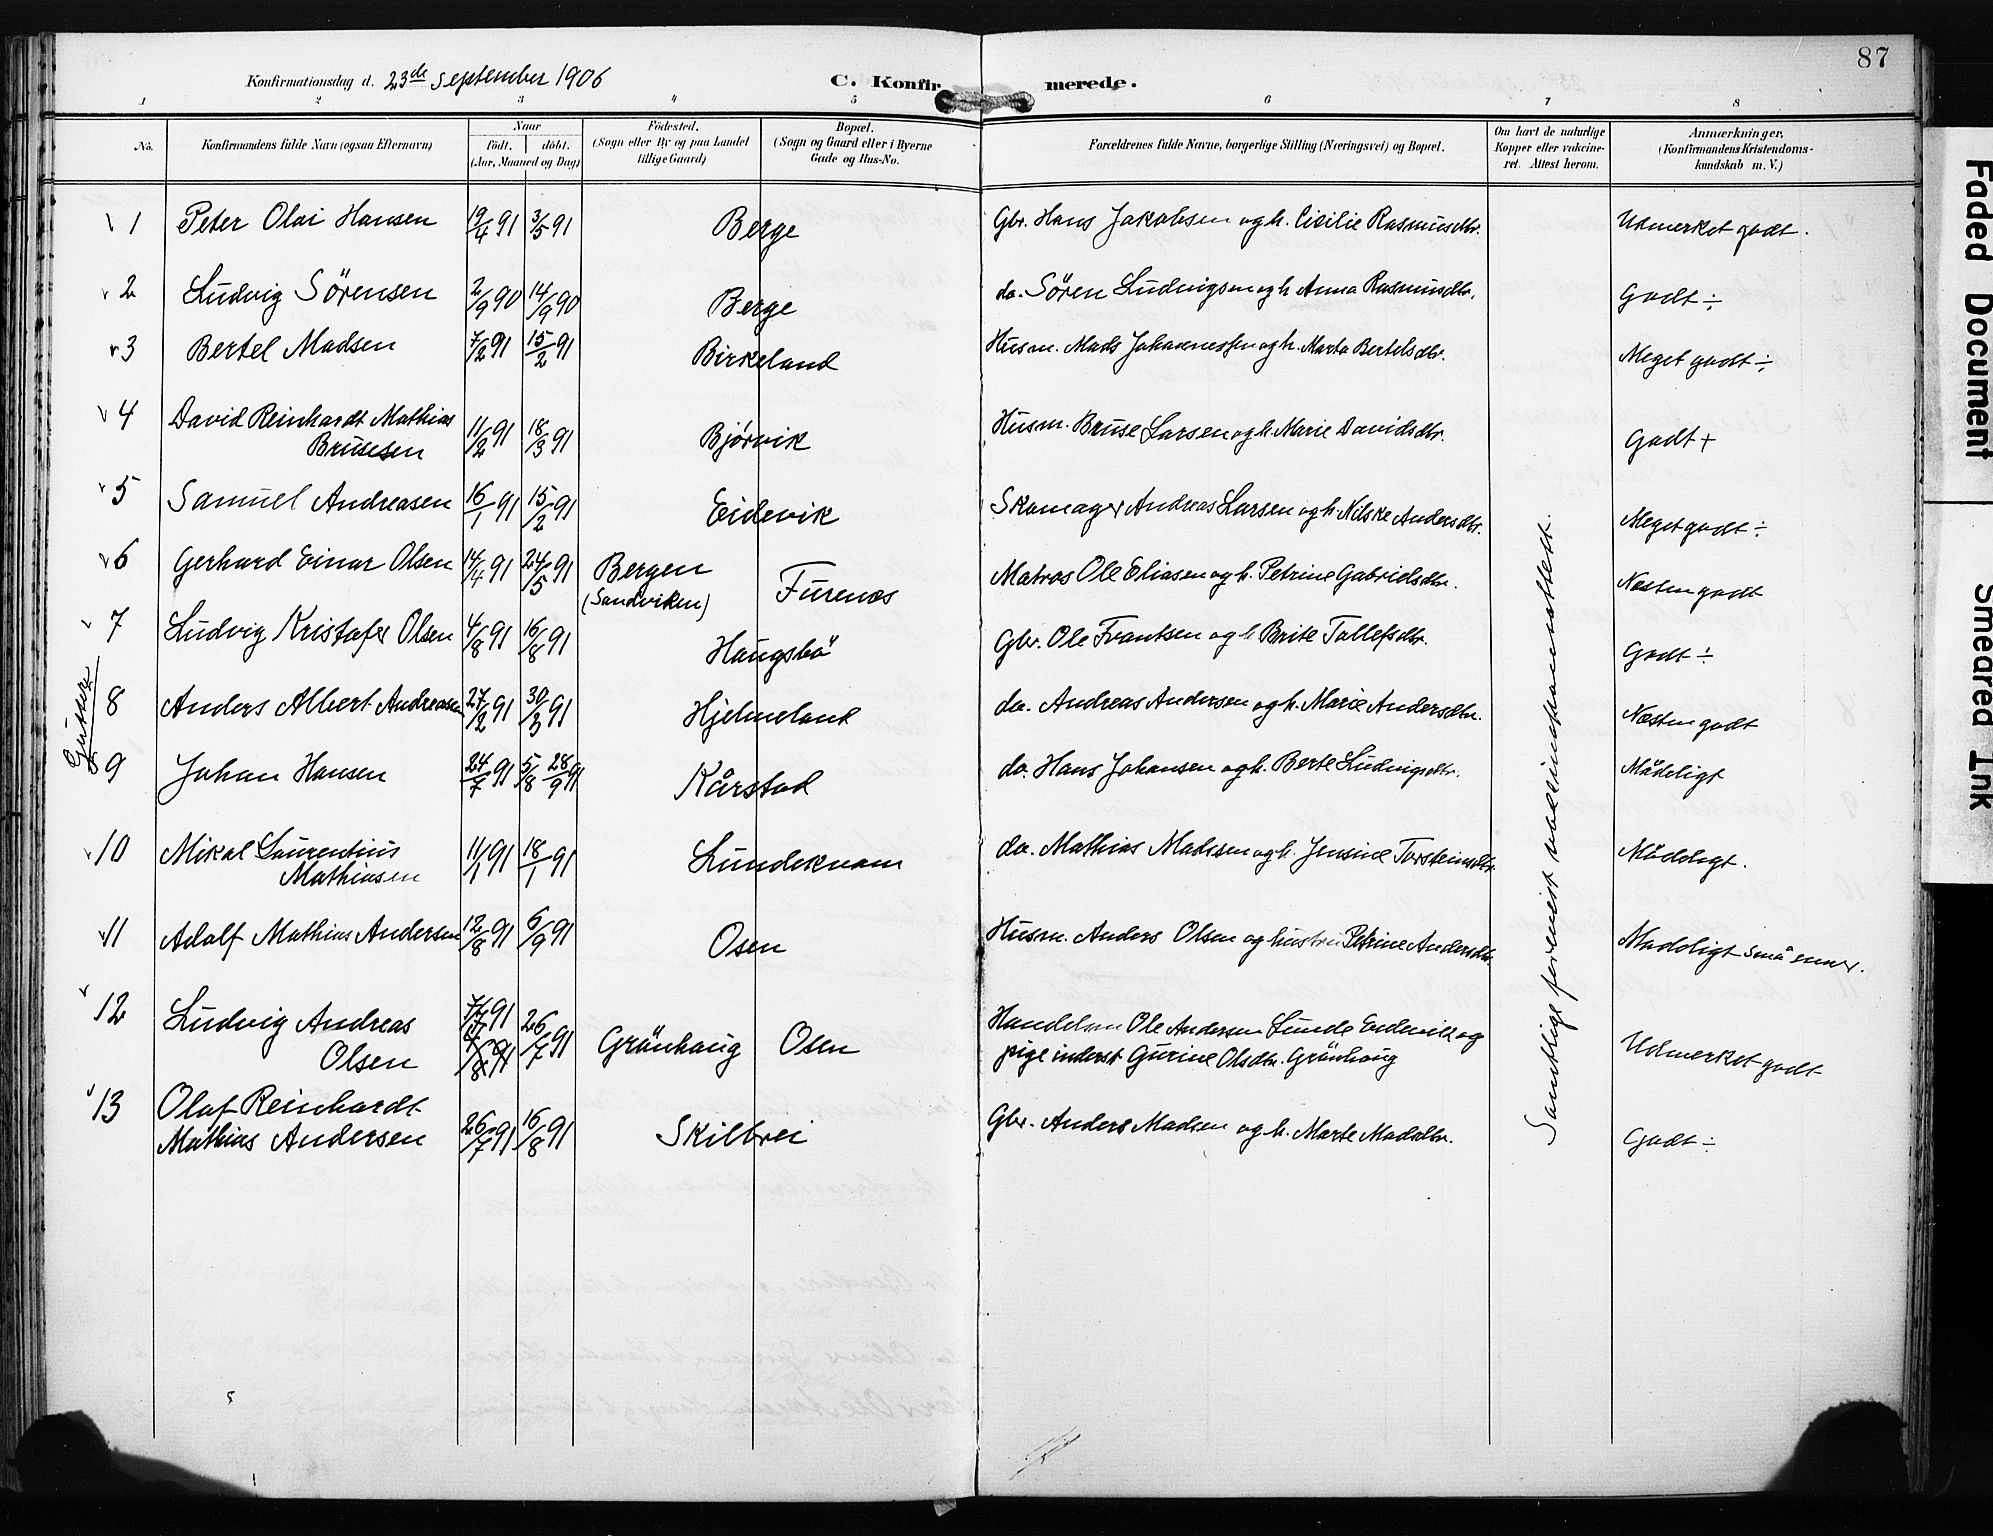 87
Konfirmationsdag d. 23de September 1906
C. Konfirmerede.
1 2 3 4 5 6 7 8
No.
Konfirmandens fulde Navn (ogsaa Efternavn)
Naar
födt. döbt.
(Aar, Maaned og Dag)
Födested.
(Sogn eller By og paa Landet
tillige Gaard)
Bopæl.
(Sogn og Gaard eller i Byerne
Gade og Hus-No.
Forældrenes fulde Navne, borgerlige Stilling (Næringsvei) og Bopæl.
Om havt de naturlige
Kopper eller vakcine-
ret. Attest herom.
Anmærkninger,
(Konfirmandens Kristendoms-
kundskab m. V.)
Gutter
1 Peter Olai Hansen 19/4 91 3/5 91 Berge Gbr. Hans Jakobsen og h. Cicilie Rasmusdtr. Udmerket godt.
2 Ludvig Sörensen 2/9 90 14/9 90 Berge do. Sören Ludvigsen og h Anna Rasmusdtr. Godt ÷
3 Bertel Madsen 7/2 91 15/2 91 Birkeland Husm. Mads Johannessen og h. Marta Bertelsdtr. Meget godt ÷
4 David Reinhardt Mathias
Brusesen 11/2 91 18/3 91 Bjørvik Husm. Bruse Larsen og h. Marie Davidsdtr. Godt +
5 Samuel Andreasen 16/1 91 15/2 91 Eidevik Skomager Andreas Larsen og h. Nilske Andersdtr. Meget godt ÷
6 Gerhard Einar Olsen 14/4 91 24/5 91 Bergen
(Sandviken) Furenes Matros Ole Eliasen og h. Petrine Gabrielsdtr. Næsten godt
7 Ludvig Kristofer Olsen 4/8 91 16/8 91 Haugsbö Gbr. Ole Frantsen og h Brite Tollefsdtr. Godt ÷
8 Anders Albert Andreasen 27/2 91 30/3 91 Hjelmeland do. Andreas Andersen og h. Marie Andersdtr. Næsten godt
9 Johan Hansen 24/7 91 5/8 28/9 91 Kårstad do. Hans Johansen og h. Berte Ludvigsdtr. Mådeligt
10 Mikal Laurentius
Mathiasen 11/1 91 18/1 91 Lundekvam do. Mathias Madssen og h. Jensine Torsteinsdtr. Mådeligt.
11 Adolf Mathias Andersen 12/8 91 6/9 91 Osen Husm. Anders Olsen og hustru Petrine Andersdtr. Mådeligt små evner.
12 Ludvig Andreas
Olsen 7/7 91 26/7 91 Grönhaug Osen Handelsm Ole Andersen Lunde Eidevik og
pige inderst Gurine Olsdtr. Grönhaug Udmerket godt
13 Olaf Reinhardt
Mathias Andersen 26/7 91 16/8 91 Skilbrei Gbr. Anders Madsen og h. Marte Madsdtr. Godt ÷
Samtlige forevist vaccinationsattest.
Faded Document
Smeared Ink